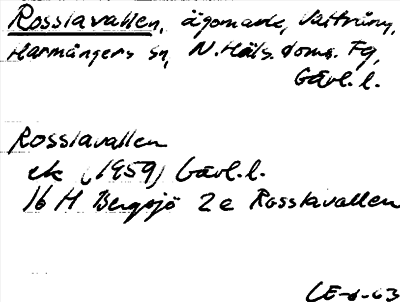 Rosslavallen, ägomade, Vattrång,
Harmångers sn, N. Häls. doms. Fg,
Gävl. l.
Rosslavallen
ek (1959) Gävl. l.
16 H Bergsjö 2 e Rosslavallen
CE-6-63